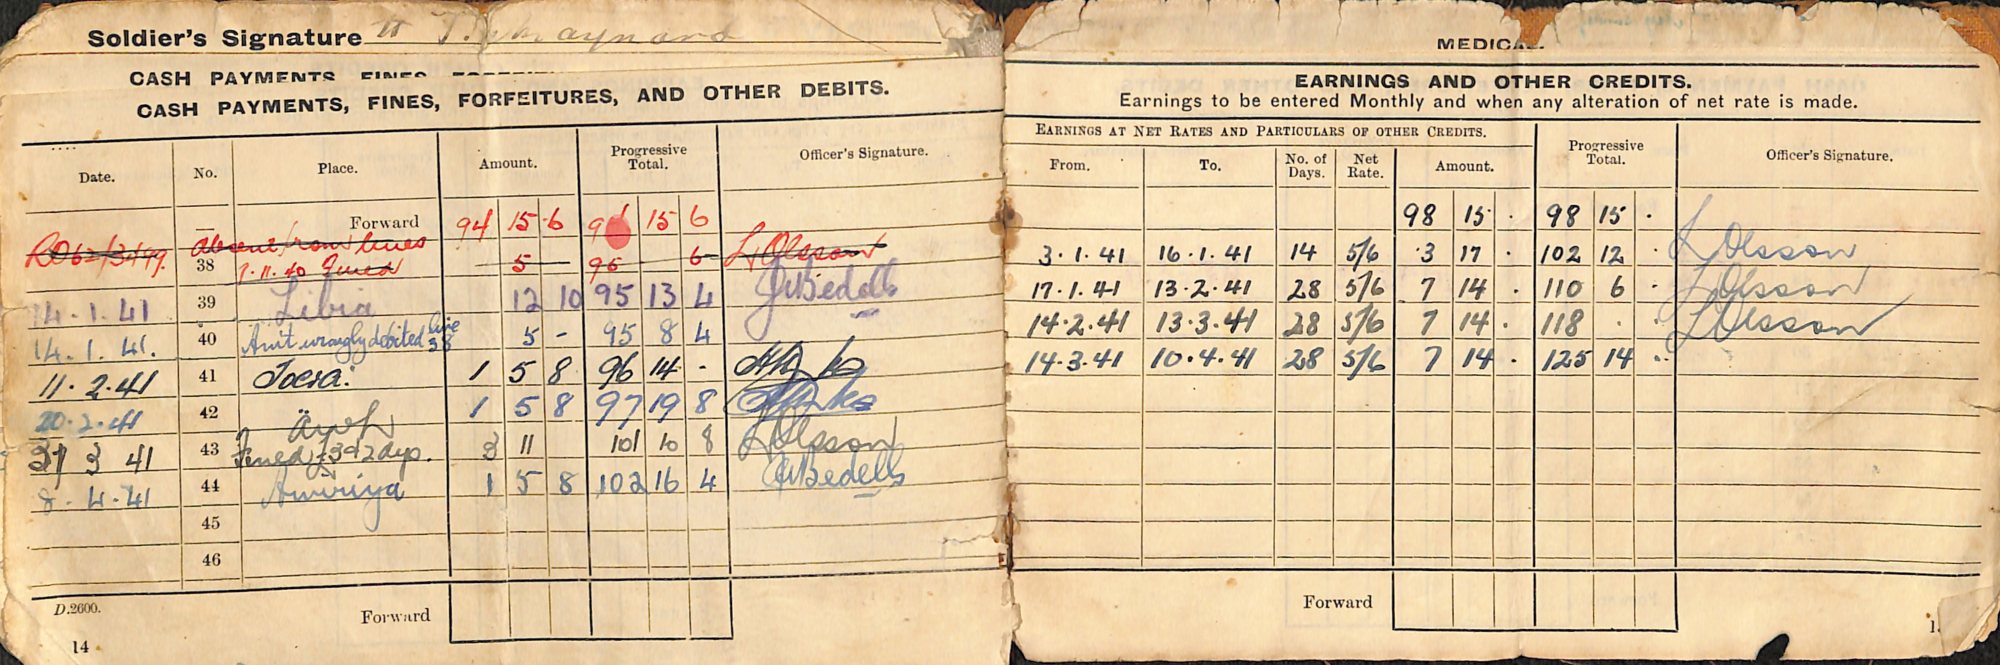 Soldier's Signature T. Maynard
CASH PAYMENTS, FINES,
CASH PAYMENTS, FINES, FORFEITURES, AND OTHER DEBITS.
Date. No. Place. Amount. Progressive Total. Officer's Signature.
Forward 94 15 6 94 15 6
absent from lines
RO 62/3/ 38 7.11.40 Fined 5 - 95 - 6 L Olsson
14.1.41 39 Libia 12 10 95 13 4 Bedells
14.1.41. 40 Am't wrongly debited line 38 5 - 95 8 4
11.2.41 41 1 5 8 96 14 -
20.2.41 42 1 5 8 97 19 8
31 3 41 43 Fined £3 & 2 dys. 3 11 101 10 8 L Olsson
8.4.41 44 Amiriya 1 5 8 102 16 4 Bedells
45
46
D.2600. Forward
14
MEDICAL
EARNINGS AND OTHER CREDITS.
Earnings to be entered Monthly and when any alteration of net rate is made.
EARNINGS AT NET RATES AND PARTICULARS OF OTHER CREDITS. Progressive Total. Officer's Signature.
From. To. No. of Days. Net Rate. Amount.
98 15 . 98 15 .
3.1.41 16.1.41 14 5/6 3 17 . 102 12 . L Olsson
17.1.41 13.2.41 28 5/6 7 14 . 110 6 . L Olsson
14.2.41 13.3.41 28 5/6 7 14 . 118 . . L Olsson
14.3.41 10.4.41 28 5/6 7 14 . 125 14 .
Forward